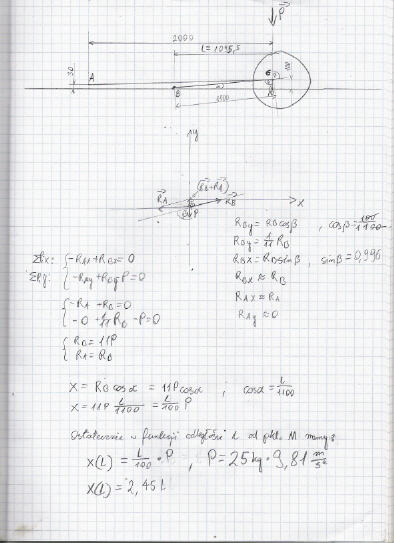 P
2000
L = 1095,5
30
A
B
1100
y
R_A
(R_B+R_A)
R_B
P
x
R_By = R_B cosβ , cosβ = 100/1100
R_By = 1/11 R_B
R_Bx = R_B sinβ , sinβ = 0,996
R_Bx ≈ R_B
R_Ax ≈ R_A
R_Ay ≈ 0
ΣRx: { -R_Ax + R_Bx = 0
ΣRy: { -R_Ay + R_By - P = 0
{ -R_A + R_B = 0
{ -0 + 1/11 R_B - P = 0
{ R_B = 11P
{ R_A = R_B
X = R_B cosα = 11P cosα ; cosα = L/1100
X = 11P L/1100 = L/100 P
Ostatecznie w funkcji odległości L od pkt. M mamy:
X(L) = L/100 · P , P = 25kg · 9,81 m/s²
X(L) = 2,45 L